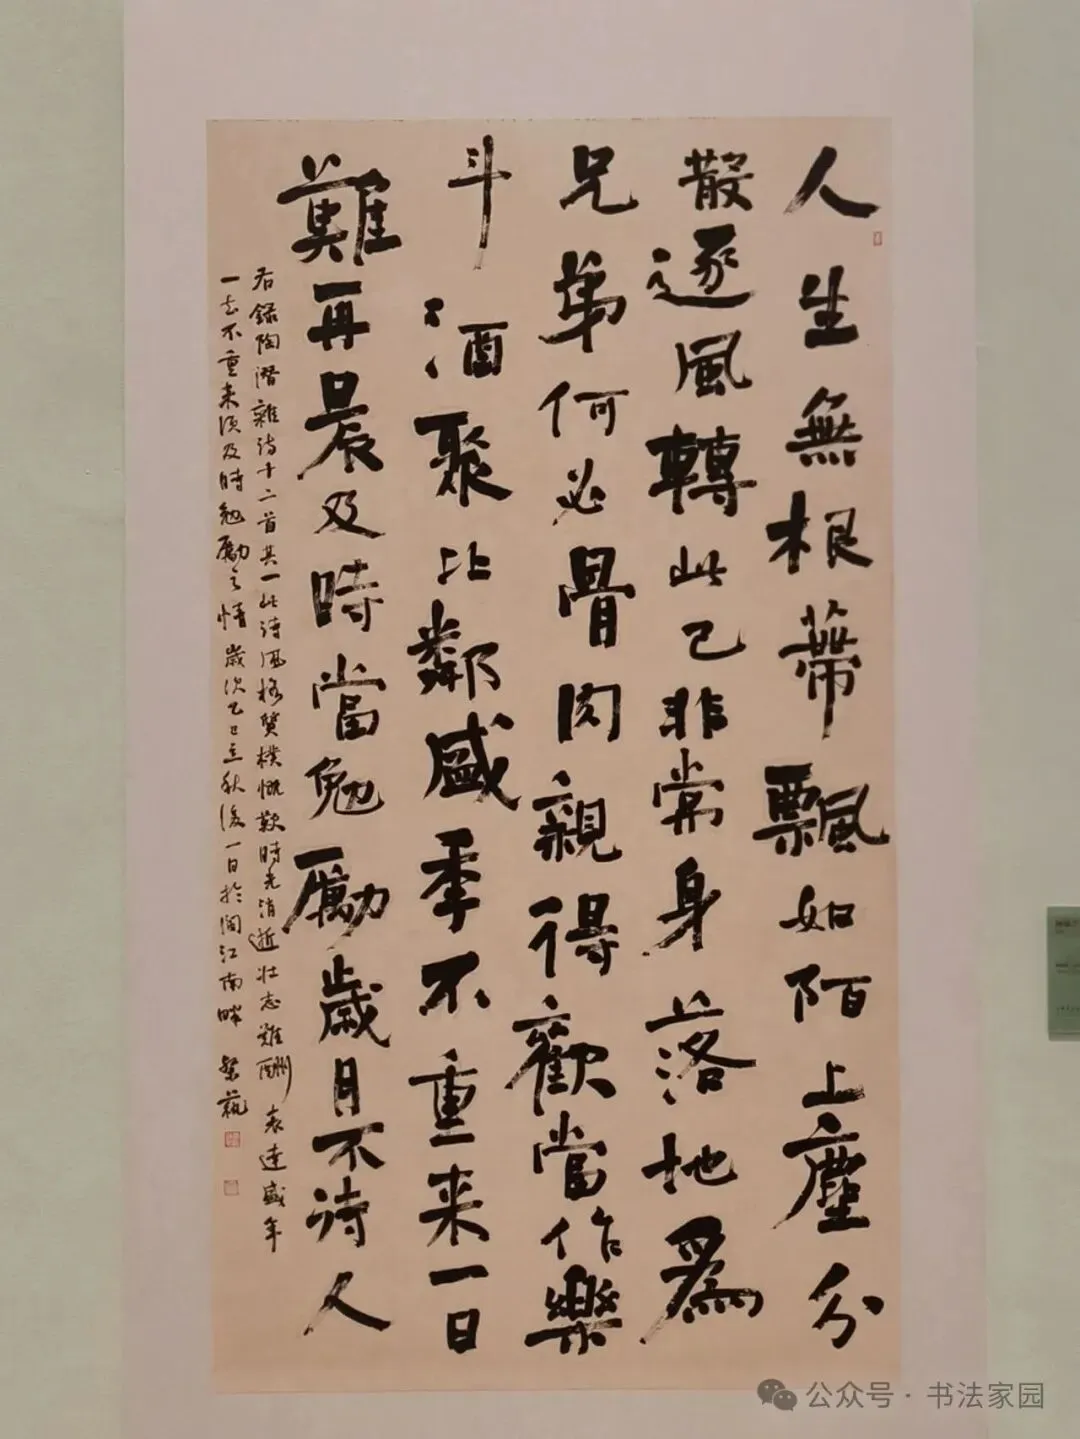 人生無根蒂飄如陌上塵分
散逐風轉此已非常身落地為
兄弟何必骨肉親得歡當作樂
斗酒聚比鄰盛季不重来一日
難再晨及時當勉勵歲月不待人
右錄陶潛雜诗十二首其一此诗風格質樸慨歎時光消逝壮志難酬表達盛年
一去不重来须及時勉勵之情歲次乙巳立秋後一日於閩江南畔
公众号·书法家园